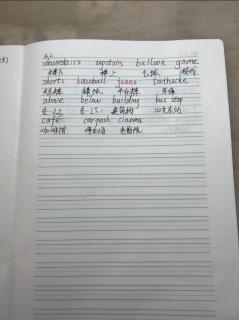 downstairs upstairs balloon game
楼下 楼上 气球 游戏
shorts baseball jeans toothache
短裤 棒球 牛仔裤 牙痛
above below building bus stop
在…上 在…下 建筑物
café carpark cinema
咖啡馆 停车场 电影院